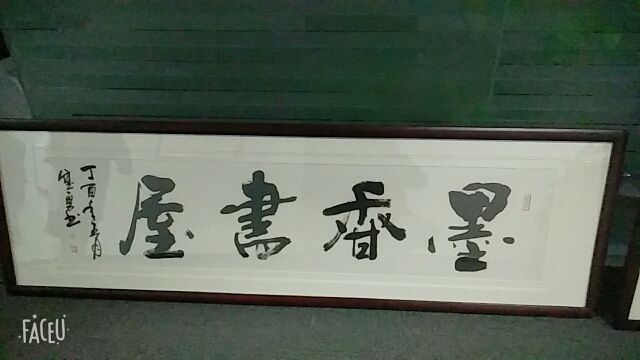 墨香書屋
丁酉年五月
FACEU